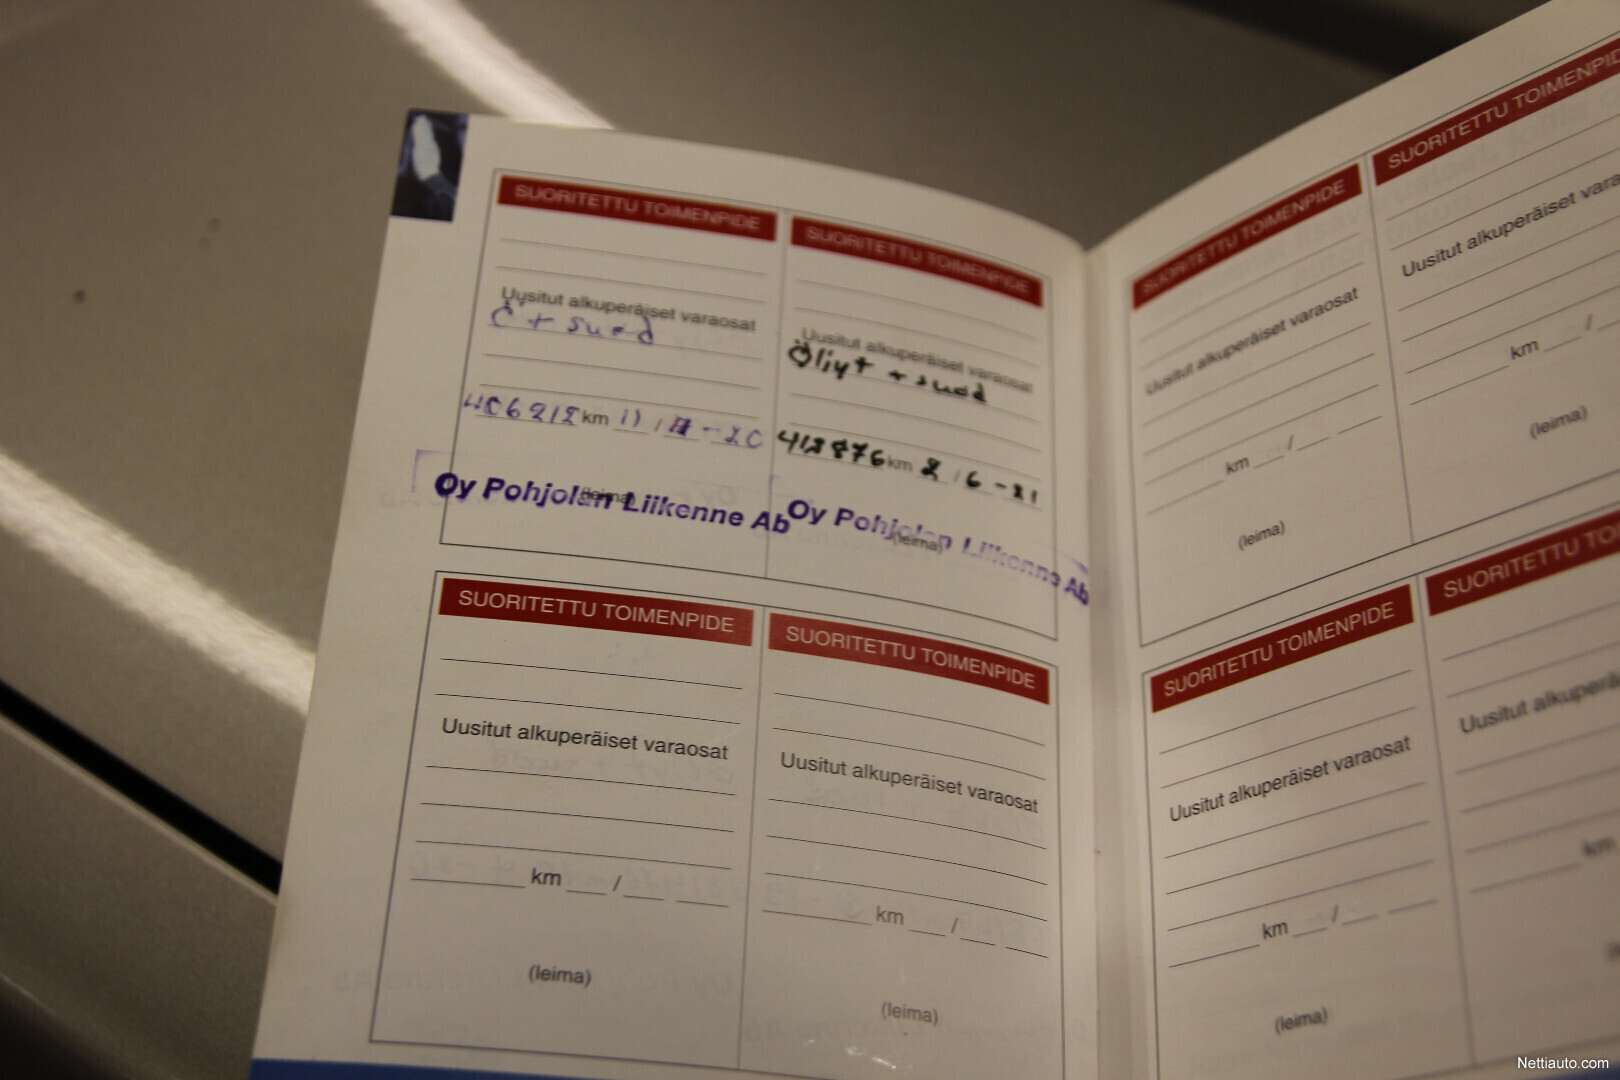 SUORITETTU TOIMENPIDE
Uusitut alkuperäiset varaosat
Ö + suod
406212 km 11 / - 20
(leima)
Oy Pohjolan Liikenne Ab
SUORITETTU TOIMENPIDE
Uusitut alkuperäiset varaosat
Öljyt + suod
km 2 / 6 - 21
(leima)
Oy Pohjolan Liikenne Ab
SUORITETTU TOIMENPIDE
Uusitut alkuperäiset varaosat
km /
(leima)
SUORITETTU TOIMENPIDE
Uusitut alkuperäiset varaosat
km /
(leima)
SUORITETTU TOIMENPIDE
Uusitut alkuperäiset varaosat
km /
(leima)
SUORITETTU TOIMENPIDE
Uusitut alkuperäiset
km /
(leima)
SUORITETTU TOIMENPIDE
Uusitut alkuperäiset varaosat
km /
(leima)
SUORITETTU
Uusitut
km
Nettiauto.com